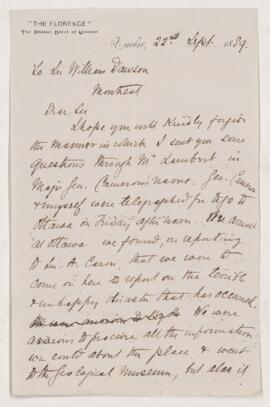 "THE FLORENCE"
The Private Hotel of Quebec
Quebec, 22nd Sept 1889.
To Sir William Dawson
Montreal
Dear Sir
I hope you will kindly forgive
the manner in which I sent you some
questions through Mr Lambert in
Maj. Gen. Cameron's name. Gen. Cameron
& myself were telegraphed for to go to
Ottawa on Friday afternoon. We arrived
at Ottawa we found, on reporting
to Sir A. Caron, that we were to
come on here to report on the terrible
& unhappy disaster that has occurred.
We were anxious to We were
anxious to procure all the information
we could about the place & went
to the Geological Museum, but alas it